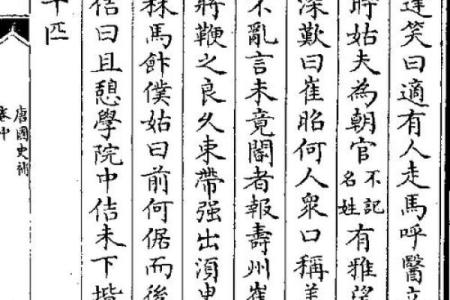 達笑曰適有人走馬呼醫立
時姑夫為朝官不記名姓有雅望
深歎曰崔昭何人衆口稱美
不亂言未竟閽者報壽州崔
將鞭之良久束帶强出湏臾
秣馬飰僕姑曰前何倨而後
佶曰且憇學院中佶未下堦
千匹
唐國史補
卷中